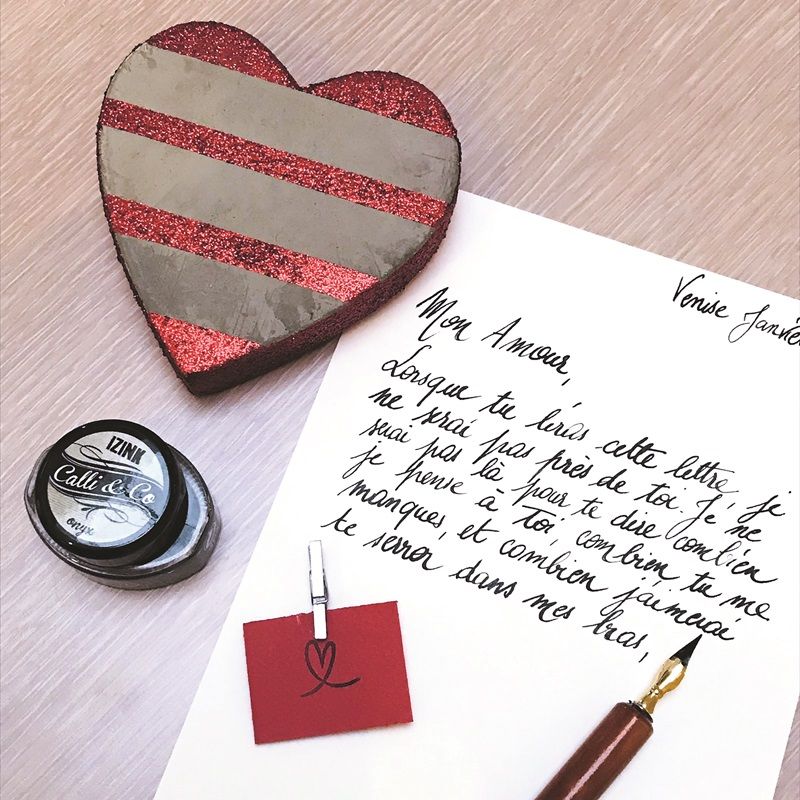 Venise Janvier
Mon Amour,
Lorsque tu liras cette lettre, je
ne serai pas près de toi. Je ne
serai pas là pour te dire combien
je pense à toi, combien tu me
manques, et combien j'aimerai
te serrer dans mes bras,
IZINK
Calli & Co
onyx